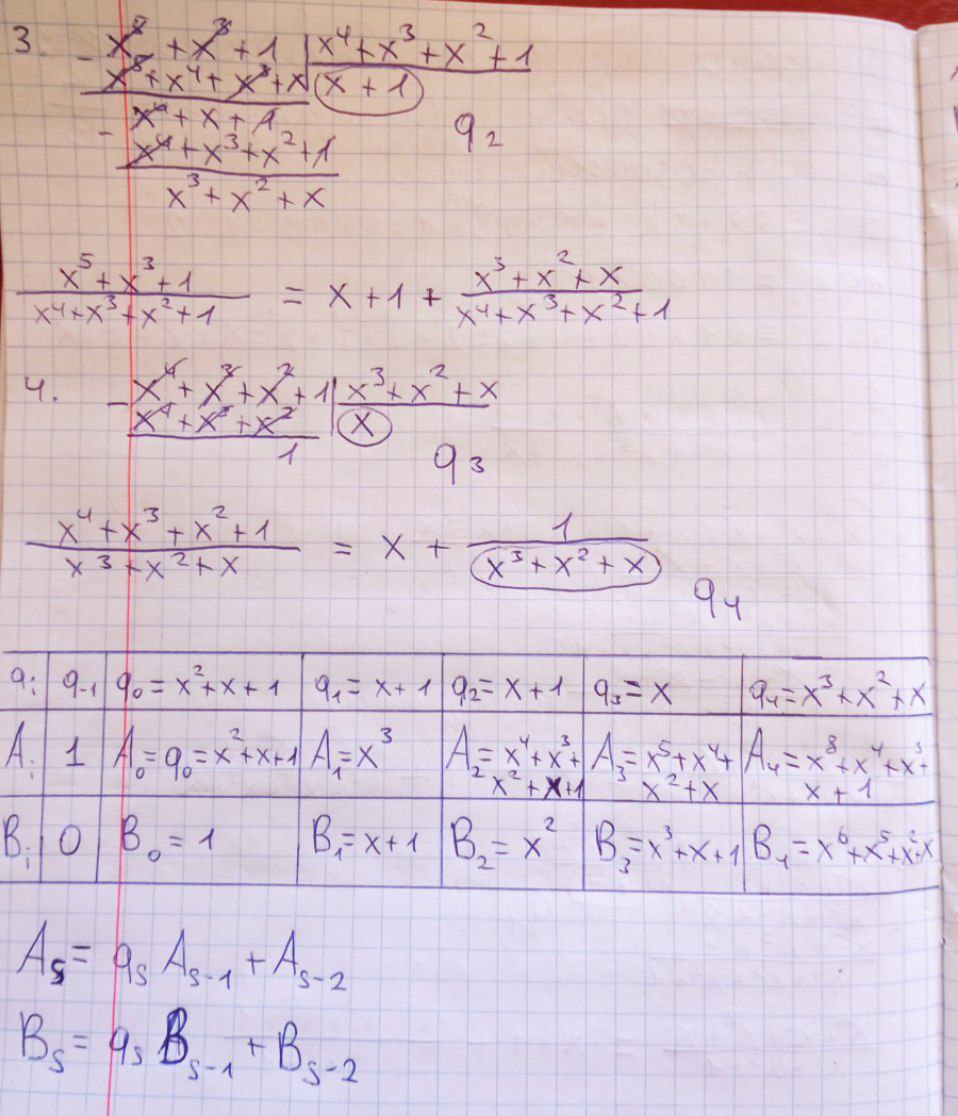 3. - x⁵ + x³ + 1 | x⁴ + x³ + x² + 1
x⁵ + x⁴ + x³ + x | x + 1
- x⁴ + x + 1 q₂
x⁴ + x³ + x² + 1
x³ + x² + x
(x⁵ + x³ + 1)/(x⁴ + x³ + x² + 1) = x + 1 + (x³ + x² + x)/(x⁴ + x³ + x² + 1)
4. - x⁴ + x³ + x² + 1 | x³ + x² + x
x⁴ + x³ + x² | x
1 q₃
(x⁴ + x³ + x² + 1)/(x³ + x² + x) = x + 1/(x³ + x² + x) q₄
qᵢ | q₋₁ | q₀ = x² + x + 1 | q₁ = x + 1 | q₂ = x + 1 | q₃ = x | q₄ = x³ + x² + x
Aᵢ | 1 | A₀ = q₀ = x² + x + 1 | A₁ = x³ | A₂ = x⁴ + x³ + x² + x + 1 | A₃ = x⁵ + x⁴ + x² + x | A₄ = x⁸ + x⁴ + x³ + x + 1
Bᵢ | 0 | B₀ = 1 | B₁ = x + 1 | B₂ = x² | B₃ = x³ + x + 1 | B₄ = x⁶ + x⁵ + x² + x
Aₛ = qₛ Aₛ₋₁ + Aₛ₋₂
Bₛ = qₛ Bₛ₋₁ + Bₛ₋₂